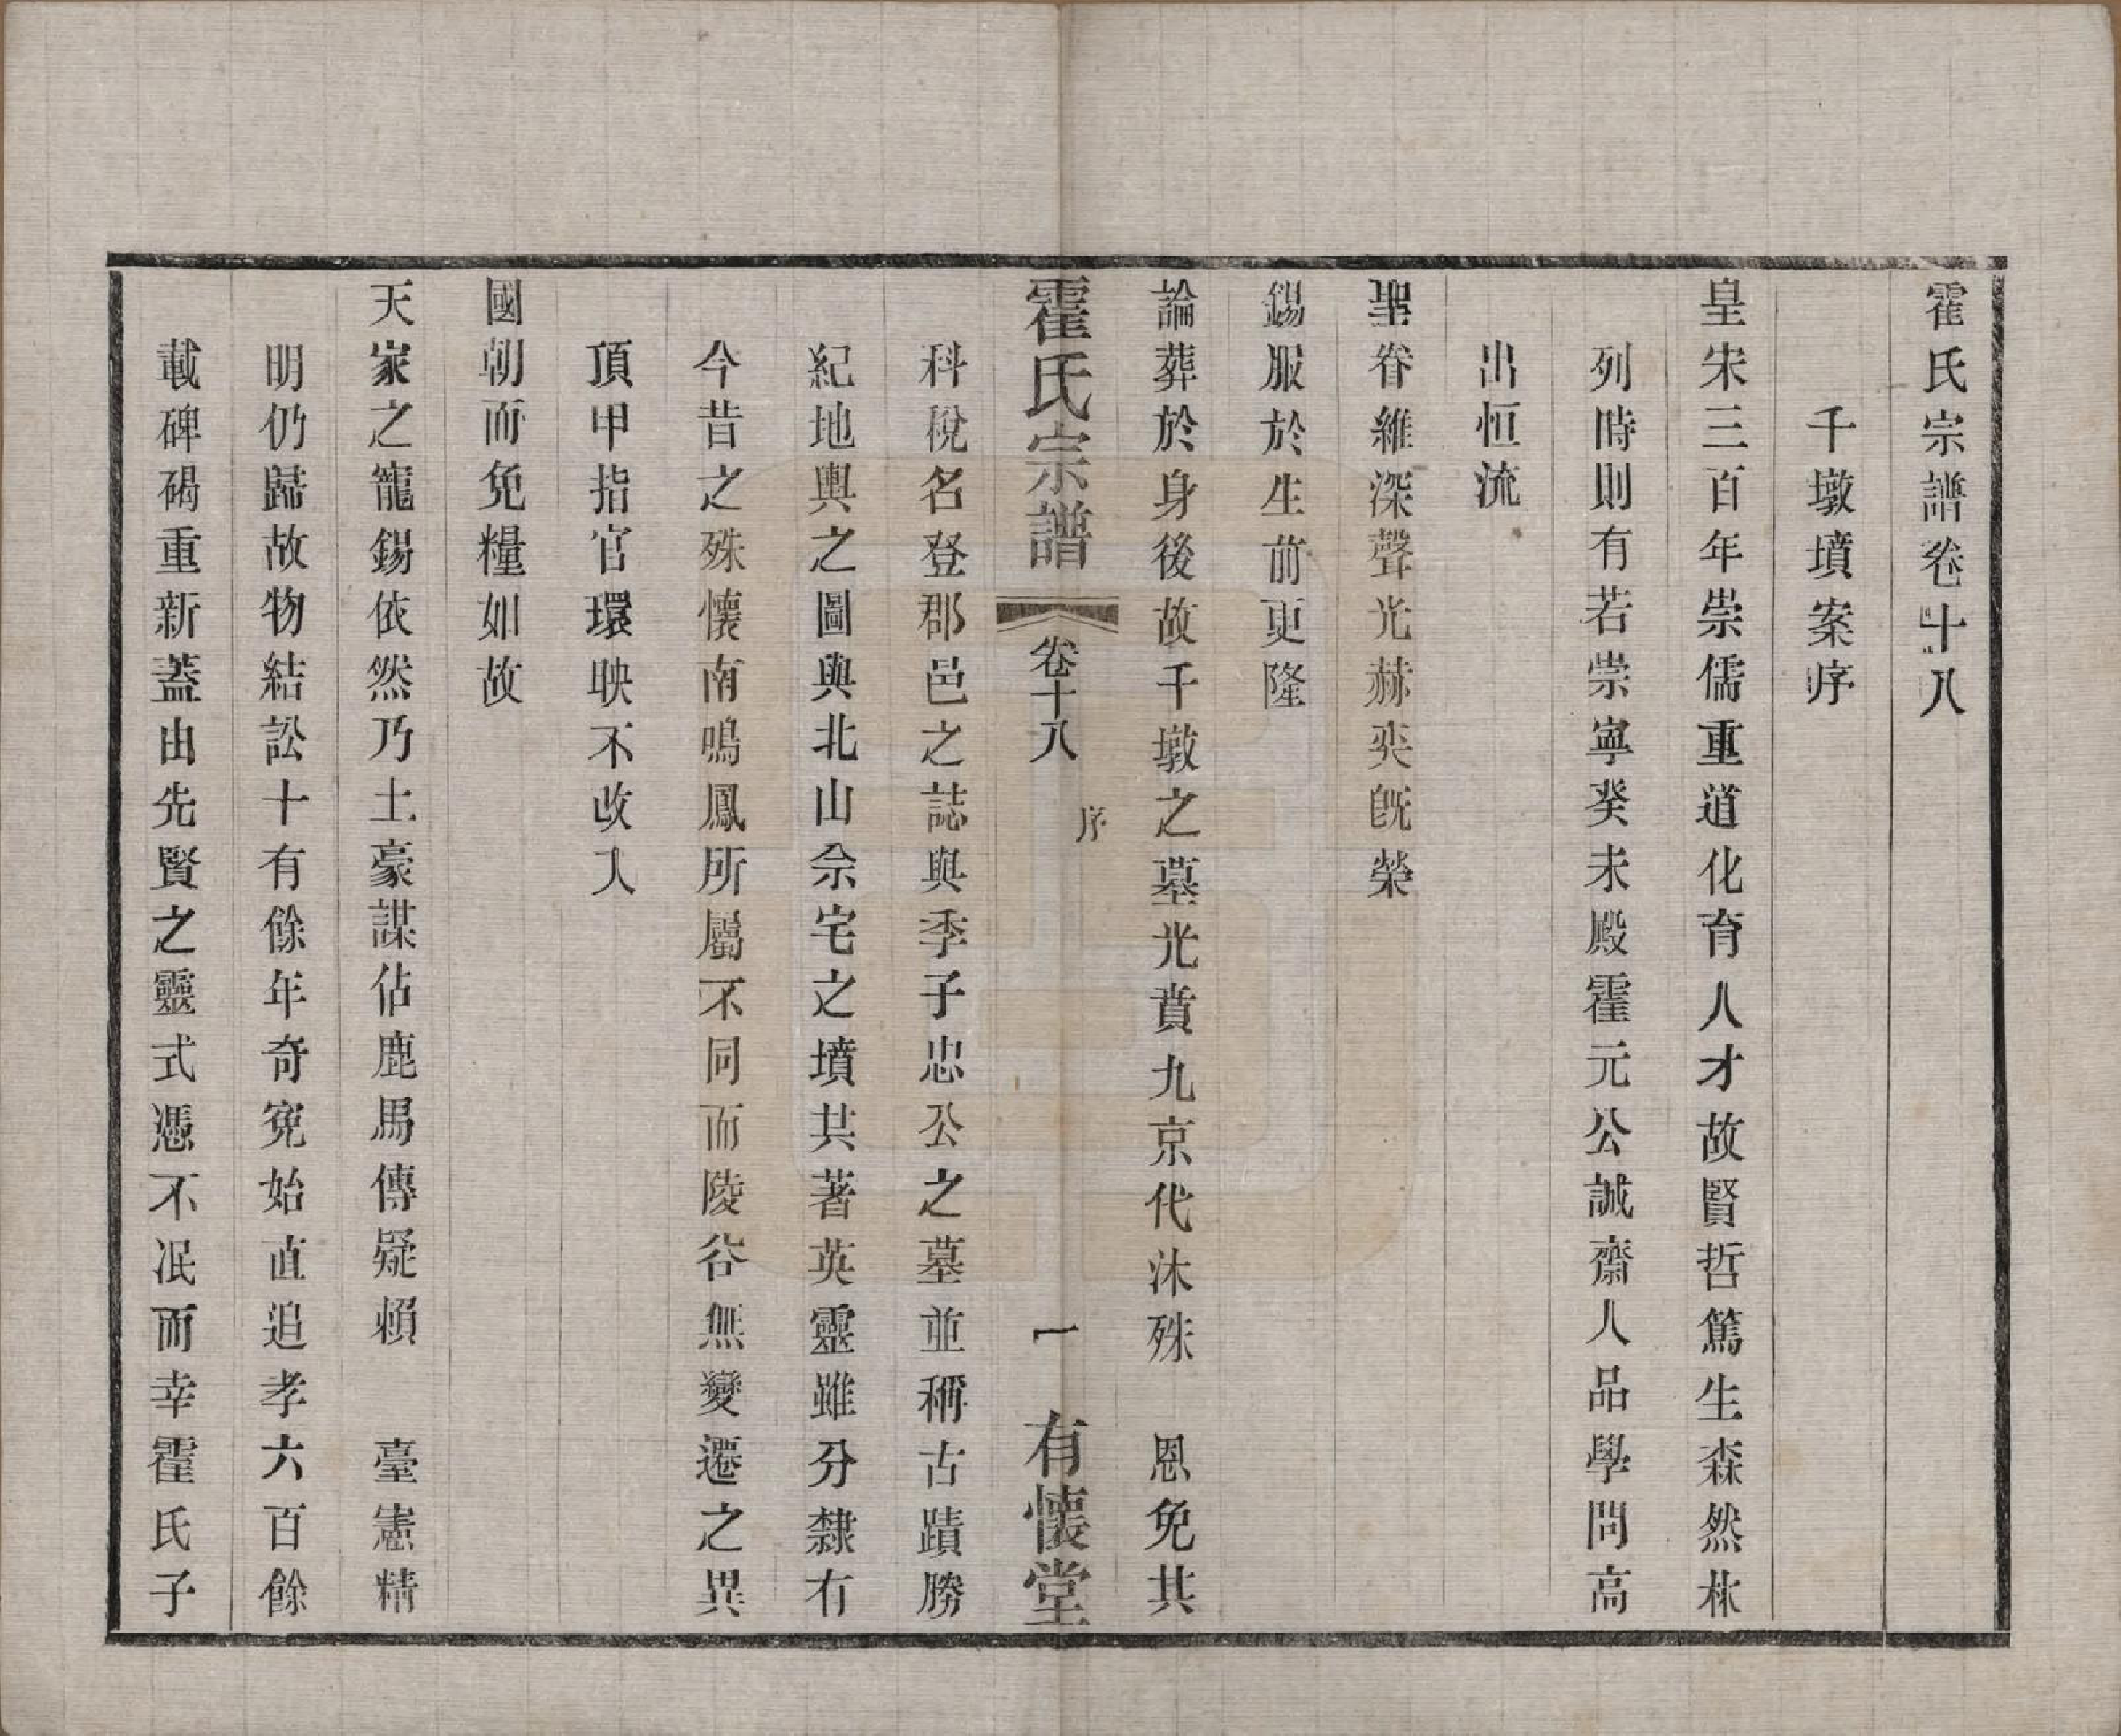 霍氏宗譜卷十八
千墩墳案序
皇宋三百年崇儒重道化育人才故賢哲篤生森然林
列時則有若崇寧癸未殿霍元公誠齋人品學問高
出恒流
聖眷維深聲光赫奕旣榮
錫服於生前更隆
論葬於身後故千墩之墓光賁九京代沐殊　恩免共
霍氏宗譜　卷十八　序　一　有懷堂
科稅名登郡邑之誌與季子忠公之墓並稱古蹟勝
紀地輿之圖與北山佘宅之墳共著英靈雖分隸有
今昔之殊懷南鳴鳳所屬不同而陵谷無變遷之異
頂甲指官環映不改入
國朝而免糧如故
天家之寵錫依然乃土豪謀佔鹿馬傳疑賴　臺憲精
明仍歸故物結訟十有餘年奇寃始直追孝六百餘
載碑碣重新蓋由先賢之靈式憑不泯而幸霍氏子